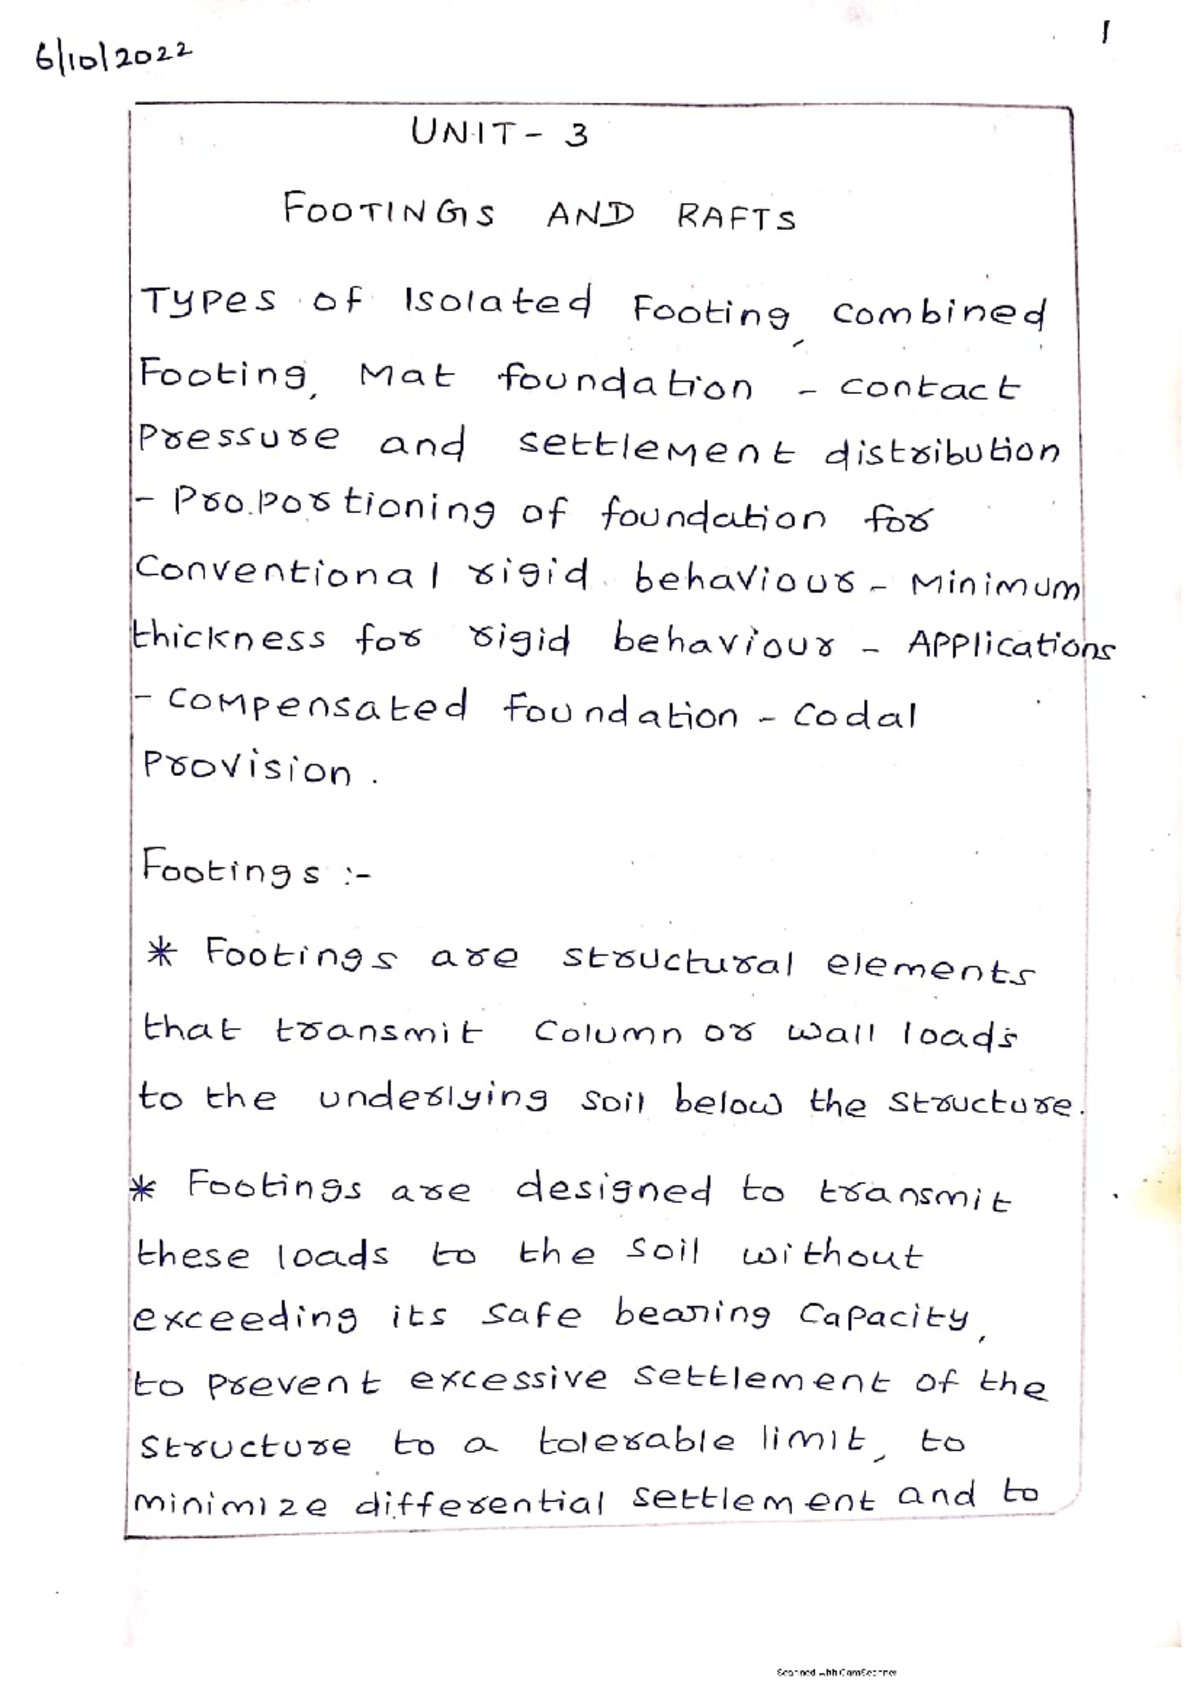 6/10/2022
1
UNIT - 3
FOOTINGS AND RAFTS
Types of Isolated Footing, combined
Footing, Mat foundation - contact
Pressure and settlement distribution
- Proportioning of foundation for
Conventional rigid behaviour - Minimum
thickness for rigid behaviour - Applications
- Compensated Foundation - Codal
Provision.
Footings :-
* Footings are structural elements
that transmit Column or wall loads
to the underlying soil below the structure.
* Footings are designed to transmit
these loads to the soil without
exceeding its safe bearing capacity,
to prevent excessive settlement of the
structure to a tolerable limit, to
minimize differential settlement and to
Scanned with CamScanner